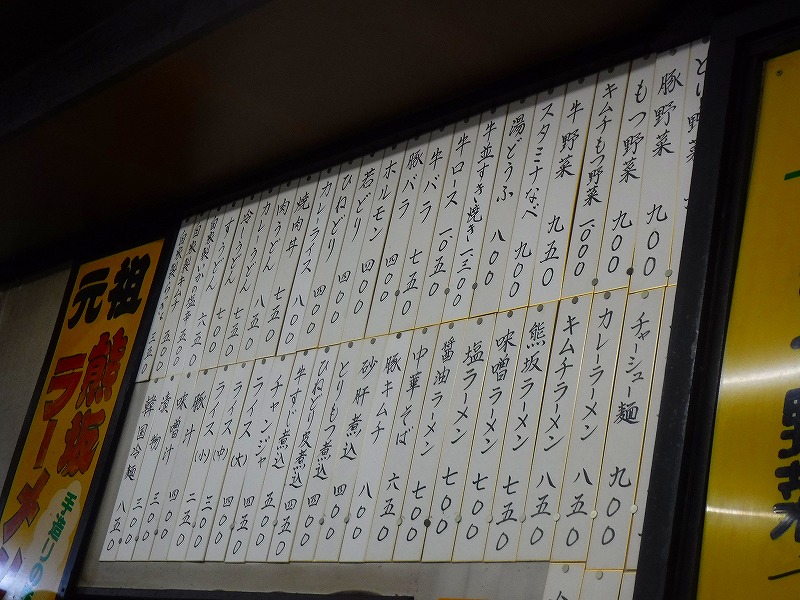 豚野菜 九〇〇
もつ野菜 九〇〇
キムチもつ野菜 一〇〇〇
牛野菜 九五〇
スタミナなべ 九〇〇
湯どうふ 八〇〇
牛並すき焼き 一三〇〇
牛ロース 一〇五〇
牛バラ 九〇〇
豚バラ 七五〇
ホルモン 四〇〇
若どり 四〇〇
ひねどり 四〇〇
カレーライス
焼肉丼 八〇〇
肉うどん
カレーうどん 八五〇
冷うどん 七五〇
すうどん 七〇〇
自家製キムチ 五〇〇
チャーシュー麺 九〇〇
カレーラーメン 八五〇
キムチラーメン 八五〇
熊坂ラーメン 八五〇
味噌ラーメン 七五〇
塩ラーメン 七〇〇
醤油ラーメン 七〇〇
中華そば 七〇〇
豚キムチ 六五〇
砂肝煮込 八〇〇
とりもつ煮込 四〇〇
ひねどり皮煮込 四〇〇
牛すじ煮込 四五〇
チャンジャ 五〇〇
ライス(大) 四五〇
ライス(中)
ライス(小) 二〇〇
豚汁 二五〇
味噌汁
漬物 三〇〇
韓国冷麺 八五〇
元祖
熊坂
ラーメン